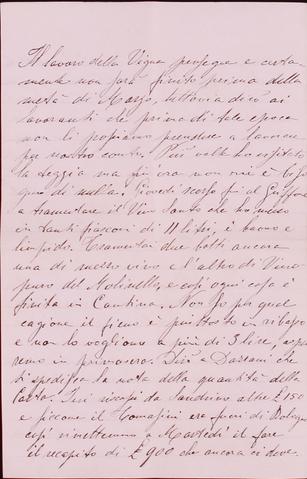 Il lavoro della Vigna prosegue e certa-
mente non sarà finito prima della
metà di Marzo, tuttavia dirò ai
lavoranti che prima di tale epoca
non li possiamo prendere a lavorare
per nostro conto. Più volte ho
la seggia ma per ora non vi è biso
gno di nulla. Giovedì scorso fui al
a tramutare il Vino Santo che ho messo
in tanti fiasconi di 11 litri, è buono e
limpido. Tramutai due botti ancora
una di mezzo vino e l'altra di Vino
puro del Molinello, e così ogni cosa è
finita in Cantina. Non so per qual
cagione il fieno è piuttosto in ribasso
e non lo vogliono a più di 3 lire, vedre
remo in primavera. Dirò a Dassani che
ti spedisca la nota della quantità della
Carta. Ieri riscossi da Sandrino altre £ 150
e siccome il Tomassini era fuori di Bologna
così rimettemmo a Martedì il fare
il recapito di £ 900 che ancora ci deve.